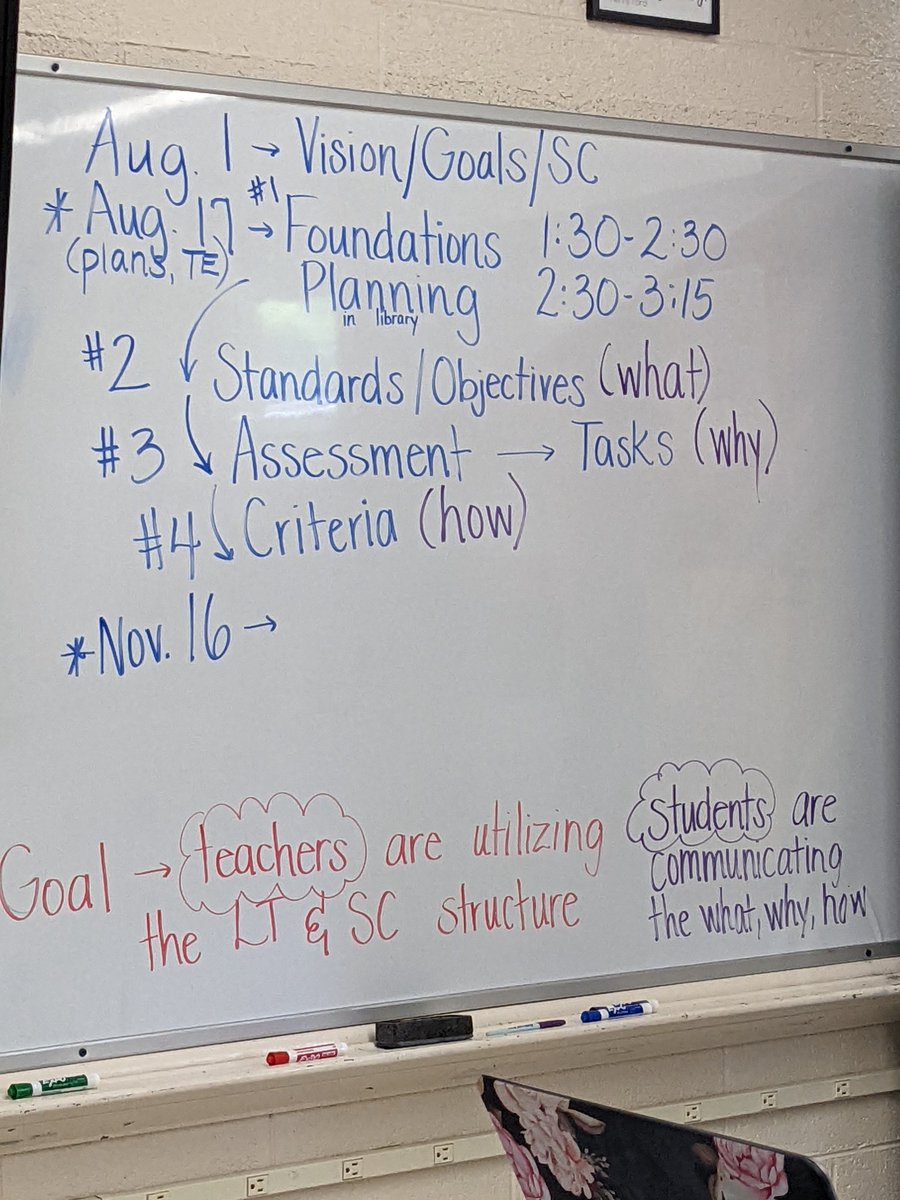 Aug. 1 → Vision/Goals/SC
* Aug. 17 #1 → Foundations 1:30-2:30
(plans, TE) Planning 2:30-3:15
in library
#2 Standards/Objectives (what)
#3 Assessment → Tasks (why)
#4 Criteria (how)
*Nov. 16 →
Goal → teachers are utilizing
the LT & SC structure
students are
communicating
the what, why, how